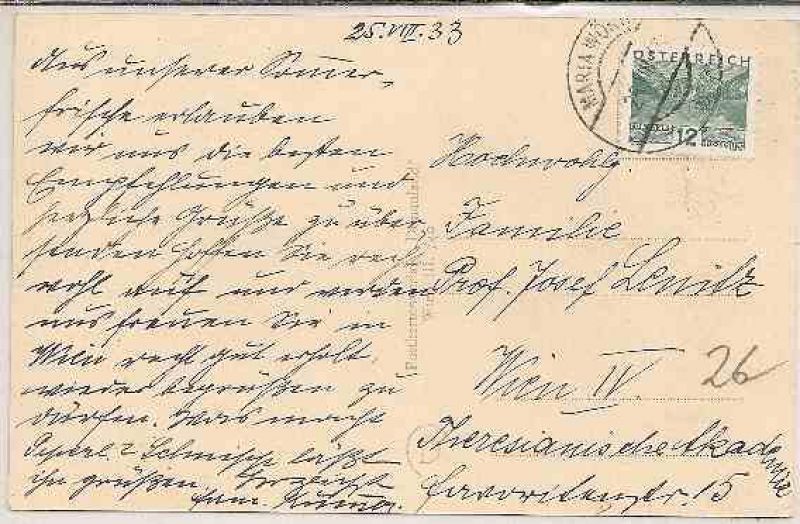 25.VIII.33
Aus unserer Sommer-
frische erlauben
wir uns die besten
Empfehlungen und
herzliche Grüße zu über
senden hoffen Sie recht
wohl auf und werden
uns freuen Sie in
Wien recht gut erholt
wieder begrüßen zu
dürfen. Was macht
läßt
ihn grüßen.
Fam.
MARIA WÖR
ÖSTERREICH
12
Hochwohlg.
Familie
Prof. Josef Lenitz
Wien IV.
26
Theresianische Akademie
Favoritenstr. 15